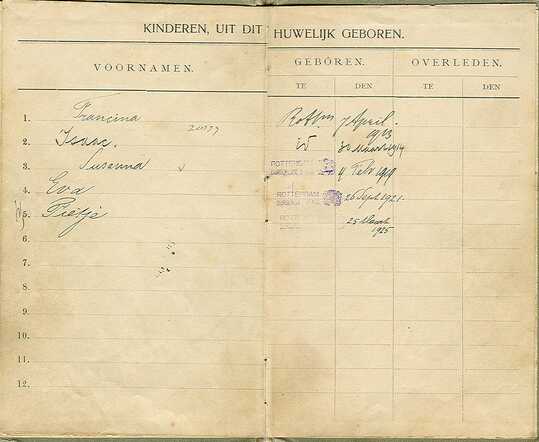 KINDEREN, UIT DIT HUWELIJK GEBOREN.
VOORNAMEN. GEBOREN. OVERLEDEN.
TE DEN TE DEN
1. Francina Rott'm 7 April. 1913
2. Isaac. id 30 Maart 1914
3. Susanna ROTTERDAM 4 Febr 1919
4. Eva ROTTERDAM 26 Sept. 1921.
5. Pietje 25 Maart 1925
6.
7.
8.
9.
10.
11.
12.